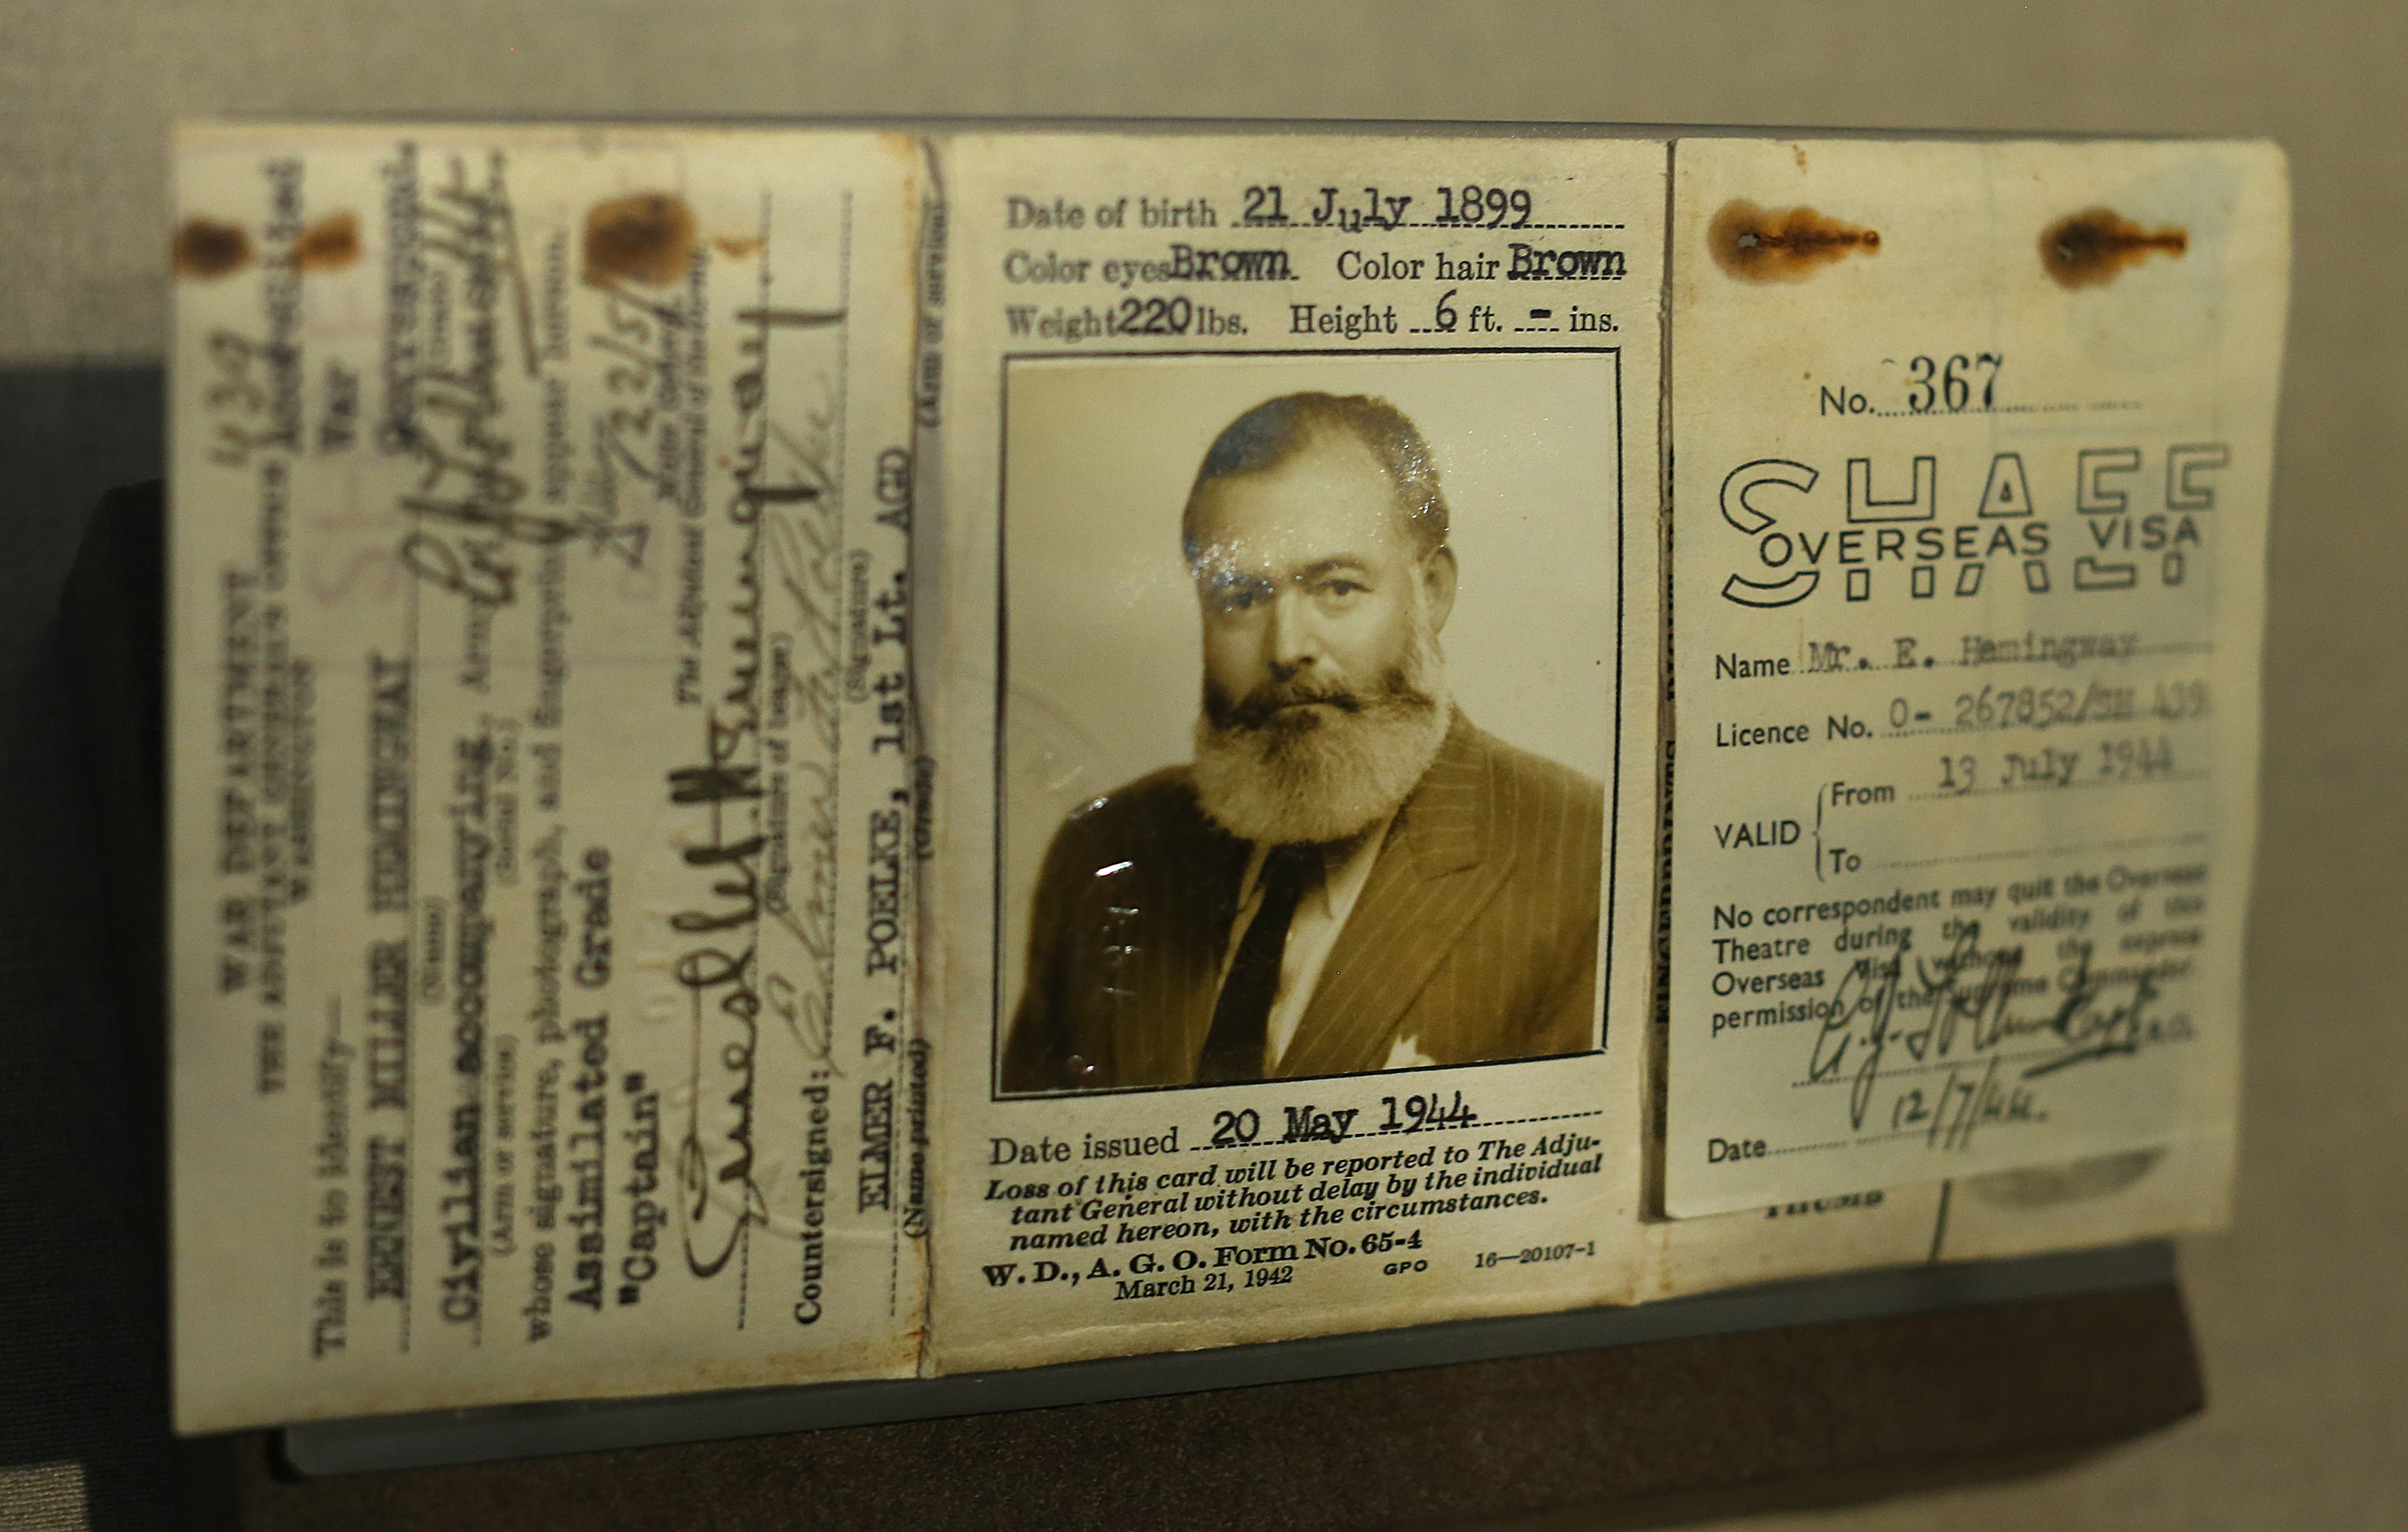 439
WAR DEPARTMENT
THE ADJUTANT GENERAL'S OFFICE
WASHINGTON
Accredited
War
Correspond.
This is to identify—
ERNEST MILLER HEMINGWAY
(Name)
Civilian accompanying, Army
(Arm or service) (Serial No.)
whose signature, photograph, and fingerprints appear hereon.
Assimilated Grade
"Captain"
22/5/
The Adjutant General of the Army.
Ernest Hemingway
(Signature of bearer)
Countersigned:
(Signature)
ELMER F. POELKE, 1st Lt. AGD
(Name printed) (Grade) (Arm or service)
Date of birth 21 July 1899
Color eyes Brown Color hair Brown
Weight 220 lbs. Height 6 ft. - ins.
Date issued 20 May 1944
Loss of this card will be reported to The Adju-
tant General without delay by the individual
named hereon, with the circumstances.
W. D., A. G. O. Form No. 65-4
March 21, 1942 GPO 16—20107-1
No. 367
SHAEF
OVERSEAS VISA
Name Mr. E. Hemingway
Licence No. 0- 267852/SH 439
VALID
From 13 July 1944
To
No correspondent may quit the Overseas
Theatre during the validity of this
Overseas Visa without the express
permission of the Supreme Commander.
Date 12/7/44.
THUMB